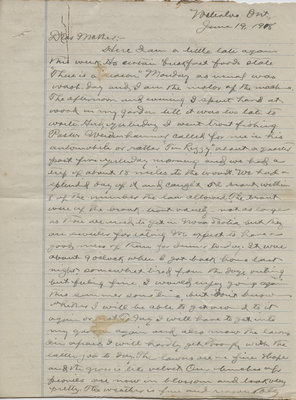 Waterloo, Ont.
June 19, 1918
Dear Mother;-
Here I am a little late again
this week. A certain
There is a "reason". Monday as usual was
wash day and I am the motor of the machine.
The afternoon and evening I spent hard at
work in my garden till it was too late to
write. Yesterday I went trout fishing.
Pastor called for me in his
automobile or rather "Tin Lizzy" about a quarter
past five yesterday morning and we had a
trip of about 18 miles to the woods. We had a
splendid day of it and caught
of the number the law allowed. The trout
were of the brook trout variety, not as large
as the
are sweeter for eating. We expect to have a
good mess of them for dinner to-day. It was
about 9 o'clock when I got back home last
night, somewhat tired from the day's outing
but feeling fine. I would enjoy going again
this summer some time, but don't know
whether I will be able to get around to it
again or not. To-day I will have to get into
my garden again and also mow the lawn
am afraid I will hardly get through with the
to-day. The lawns are fine. Hope
and the grass is like velvet. Our
are now in blossom and look very
pretty. The weather is fine and